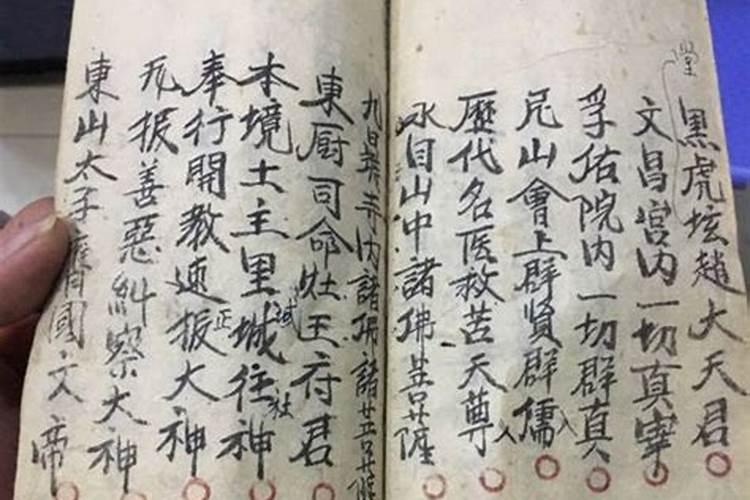 黑虎坛趙大天君
堂
文昌宮内一切真宰
孚佑院内一切群真
尼山會上群賢群儒
歷代名医救苦天尊
水目山中諸佛
寺内諸佛諸
東厨司命灶王府君
本境土主里城往神
域
社
奉行開教速振大神
正
振善惡糾察大神
東山太子國文帝